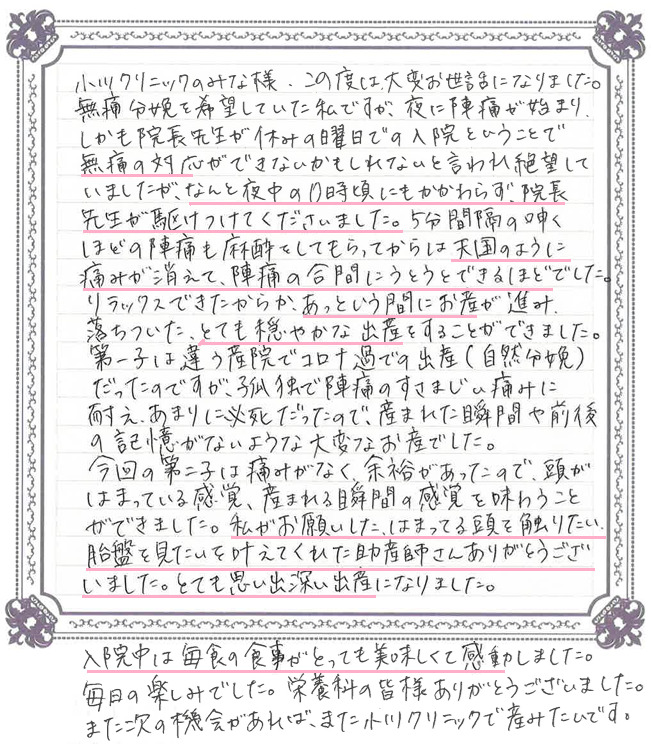 小川クリニックのみな様、この度は大変お世話になりました。
無痛分娩を希望していた私ですが、夜に陣痛が始まり、
しかも院長先生が休みの曜日での入院ということで
無痛の対応ができないかもしれないと言われ絶望して
いましたが、なんと夜中の0時頃にもかかわらず、院長
先生が駆けつけてくださいました。5分間隔の呻く
ほどの陣痛も麻酔をしてもらってからは天国のように
痛みが消えて、陣痛の合間にうとうとできるほどでした。
リラックスできたからか、あっという間にお産が進み、
落ちついた、とても穏やかな出産をすることができました。
第一子は違う産院でコロナ過での出産(自然分娩)
だったのですが、孤独で陣痛のすさまじい痛みに
耐え、あまりに必死だったので、産まれた瞬間や前後
の記憶がないような大変なお産でした。
今回の第二子は痛みがなく、余裕があったので、頭が
はまっている感覚、産まれる瞬間の感覚を味わうこと
ができました。私がお願いした、はまってる頭を触りたい、
胎盤を見たいを叶えてくれた助産師さんありがとうござい
いました。とても思い出深い出産になりました。
入院中は毎食の食事がとっても美味しくて感動しました。
毎日の楽しみでした。栄養科の皆様ありがとうございました。
また次の機会があれば、また小川クリニックで産みたいです。